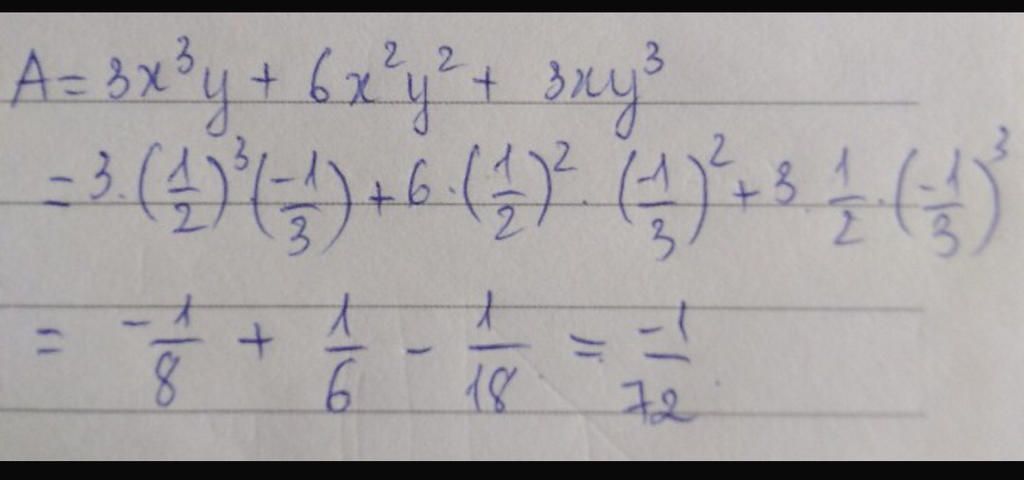 A = 3x³y + 6x²y² + 3xy³
= 3.(1/2)³(-1/3) + 6.(1/2)².(-1/3)² + 3.1/2.(-1/3)³
= -1/8 + 1/6 - 1/18 = -1/72